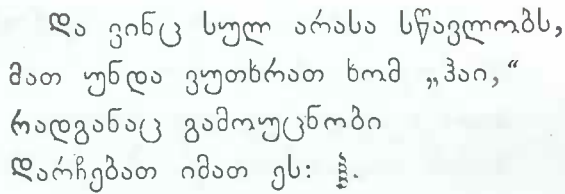 და ვინც სულ არასა სწავლობს,
მათ უნდა ვუთხრათ ხომ „ჰაი,“
რადგანაც გამოუცნობი
დარჩებათ იმათ ეს: ჵ.